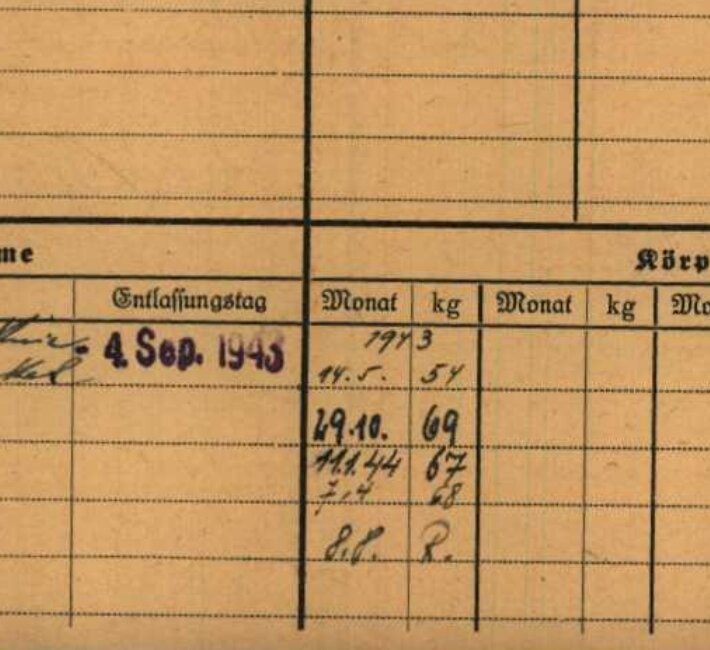 me
Körp
Entlassungstag Monat kg Monat kg Mo
- 4. Sep. 1943 1943
14.5. 54
29.10. 69
11.1.44 67
7.4 68
8.8. R.